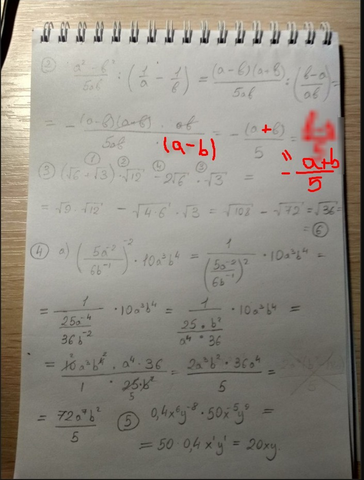 ② a² - b² / 5ab : (1/a - 1/b) = (a-b)(a+b) / 5ab : (b-a / ab) =
= - (a-b)(a+b) · ab / 5ab · (a-b) = - (a+b) / 5 =
" - a+b / 5
③ (√6 + √3) · √12 - 2√6 · √3 =
① ③ ④ ②
= √9 · √12 - √4·6 · √3 = √108 - √72 = √36 =
= ⑥
④ a) (5a⁻² / 6b⁻¹)⁻² · 10a³b⁴ = 1 / (5a⁻² / 6b⁻¹)² · 10a³b⁴ =
= 1 / 25a⁻⁴ / 36b⁻² · 10a³b⁴ = 1 / 25 · b² / a⁴ · 36 · 10a³b⁴ =
= 10a³b⁴ · a⁴ · 36 / 1 · 25 · b² = 2a³b² · 36a⁴ / 5 =
2 2 5
= 72a⁷b² / 5 ⑤ 0,4x⁶y⁻⁸ · 50x⁻⁵y⁹ =
= 50 · 0,4x¹y¹ = 20xy.